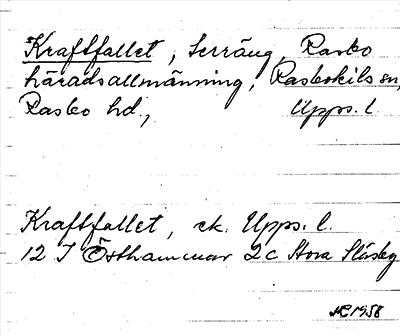 Kraftfallet, terräng, Rasbo
häradsallmänning, Rasbokils sn,
Rasbo hd, Upps. l.
Kraftfallet, ek. Upps. l.
12 I Östhammar 2c Stora
1958